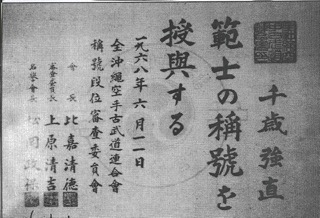 千歳強直
範士の稱號を
授與する
一九六八年六月一一日
全沖縄空手古武道連合會
稱號段位審查委員會
會長 比嘉清徳
審查委員長 上原清吉
名譽會長